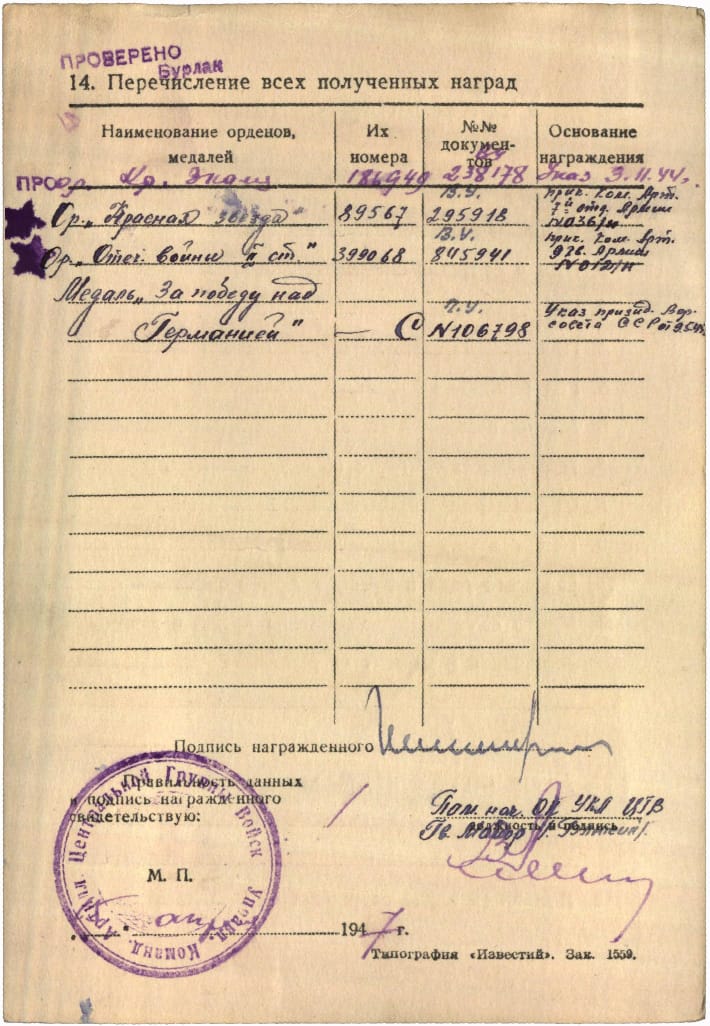 ПРОВЕРЕНО
Бурлак
14. Перечисление всех полученных наград
Наименование орденов, медалей
Их номера
№№ документов
Основание награждения
ПРО
Ор. Кр. Знамя 186949 238178 Указ 3.11.44г.
Ор. „Красная звезда" 89567 В.У. 295918 прик. Ком. Арт. 7й отд. Армии N036/н
Ор. „Отеч. войны II ст." 399068 В.У. 845941 прик. Ком. Арт. 9 гв. Армии
Медаль „За победу над
Германией" — С N106798 Указ през. Вер. совета СССР от
Подпись награжденного
Правильность данных
и подпись награжденного
свидетельствую:
Пом. нач. ОК УКА ЦГВ
должность и подпись
Гв. Майор
М. П.
Управл. Команд. Артил. Центральной Группы Войск
1947 г.
Типография «Известий». Зак. 1559.